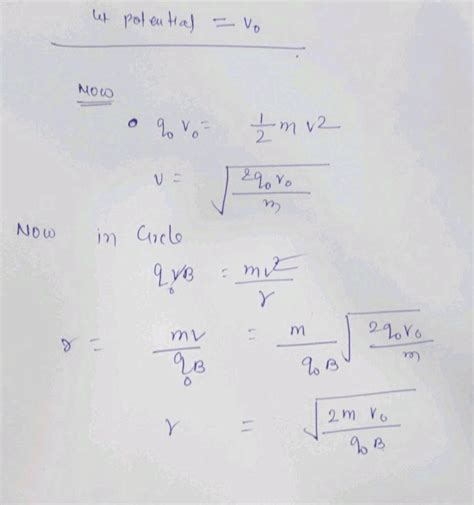 let potential = V₀
Now
• q₀ V₀ = 1/2 m v2
v = √(2q₀V₀/m)
Now in Circle
q₀vB = mv²/r
r = mv/q₀B = m/q₀B √(2q₀V₀/m)
r = √(2m V₀/q₀ B)